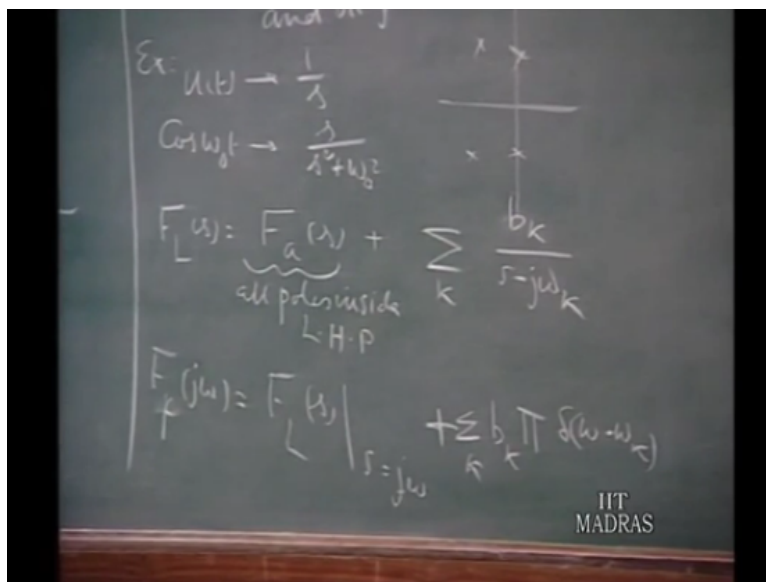 and
Ex: u(t) → 1/s
Cos ω₀t → s/(s²+ω₀²)
F_L(s) = F_a(s) + Σ_k b_k/(s-jω_k)
all poles inside
L.H.P
F_F(jω) = F_L(s)|_{s=jω} + Σ_k b_k π δ(ω-ω_k)
IIT
MADRAS